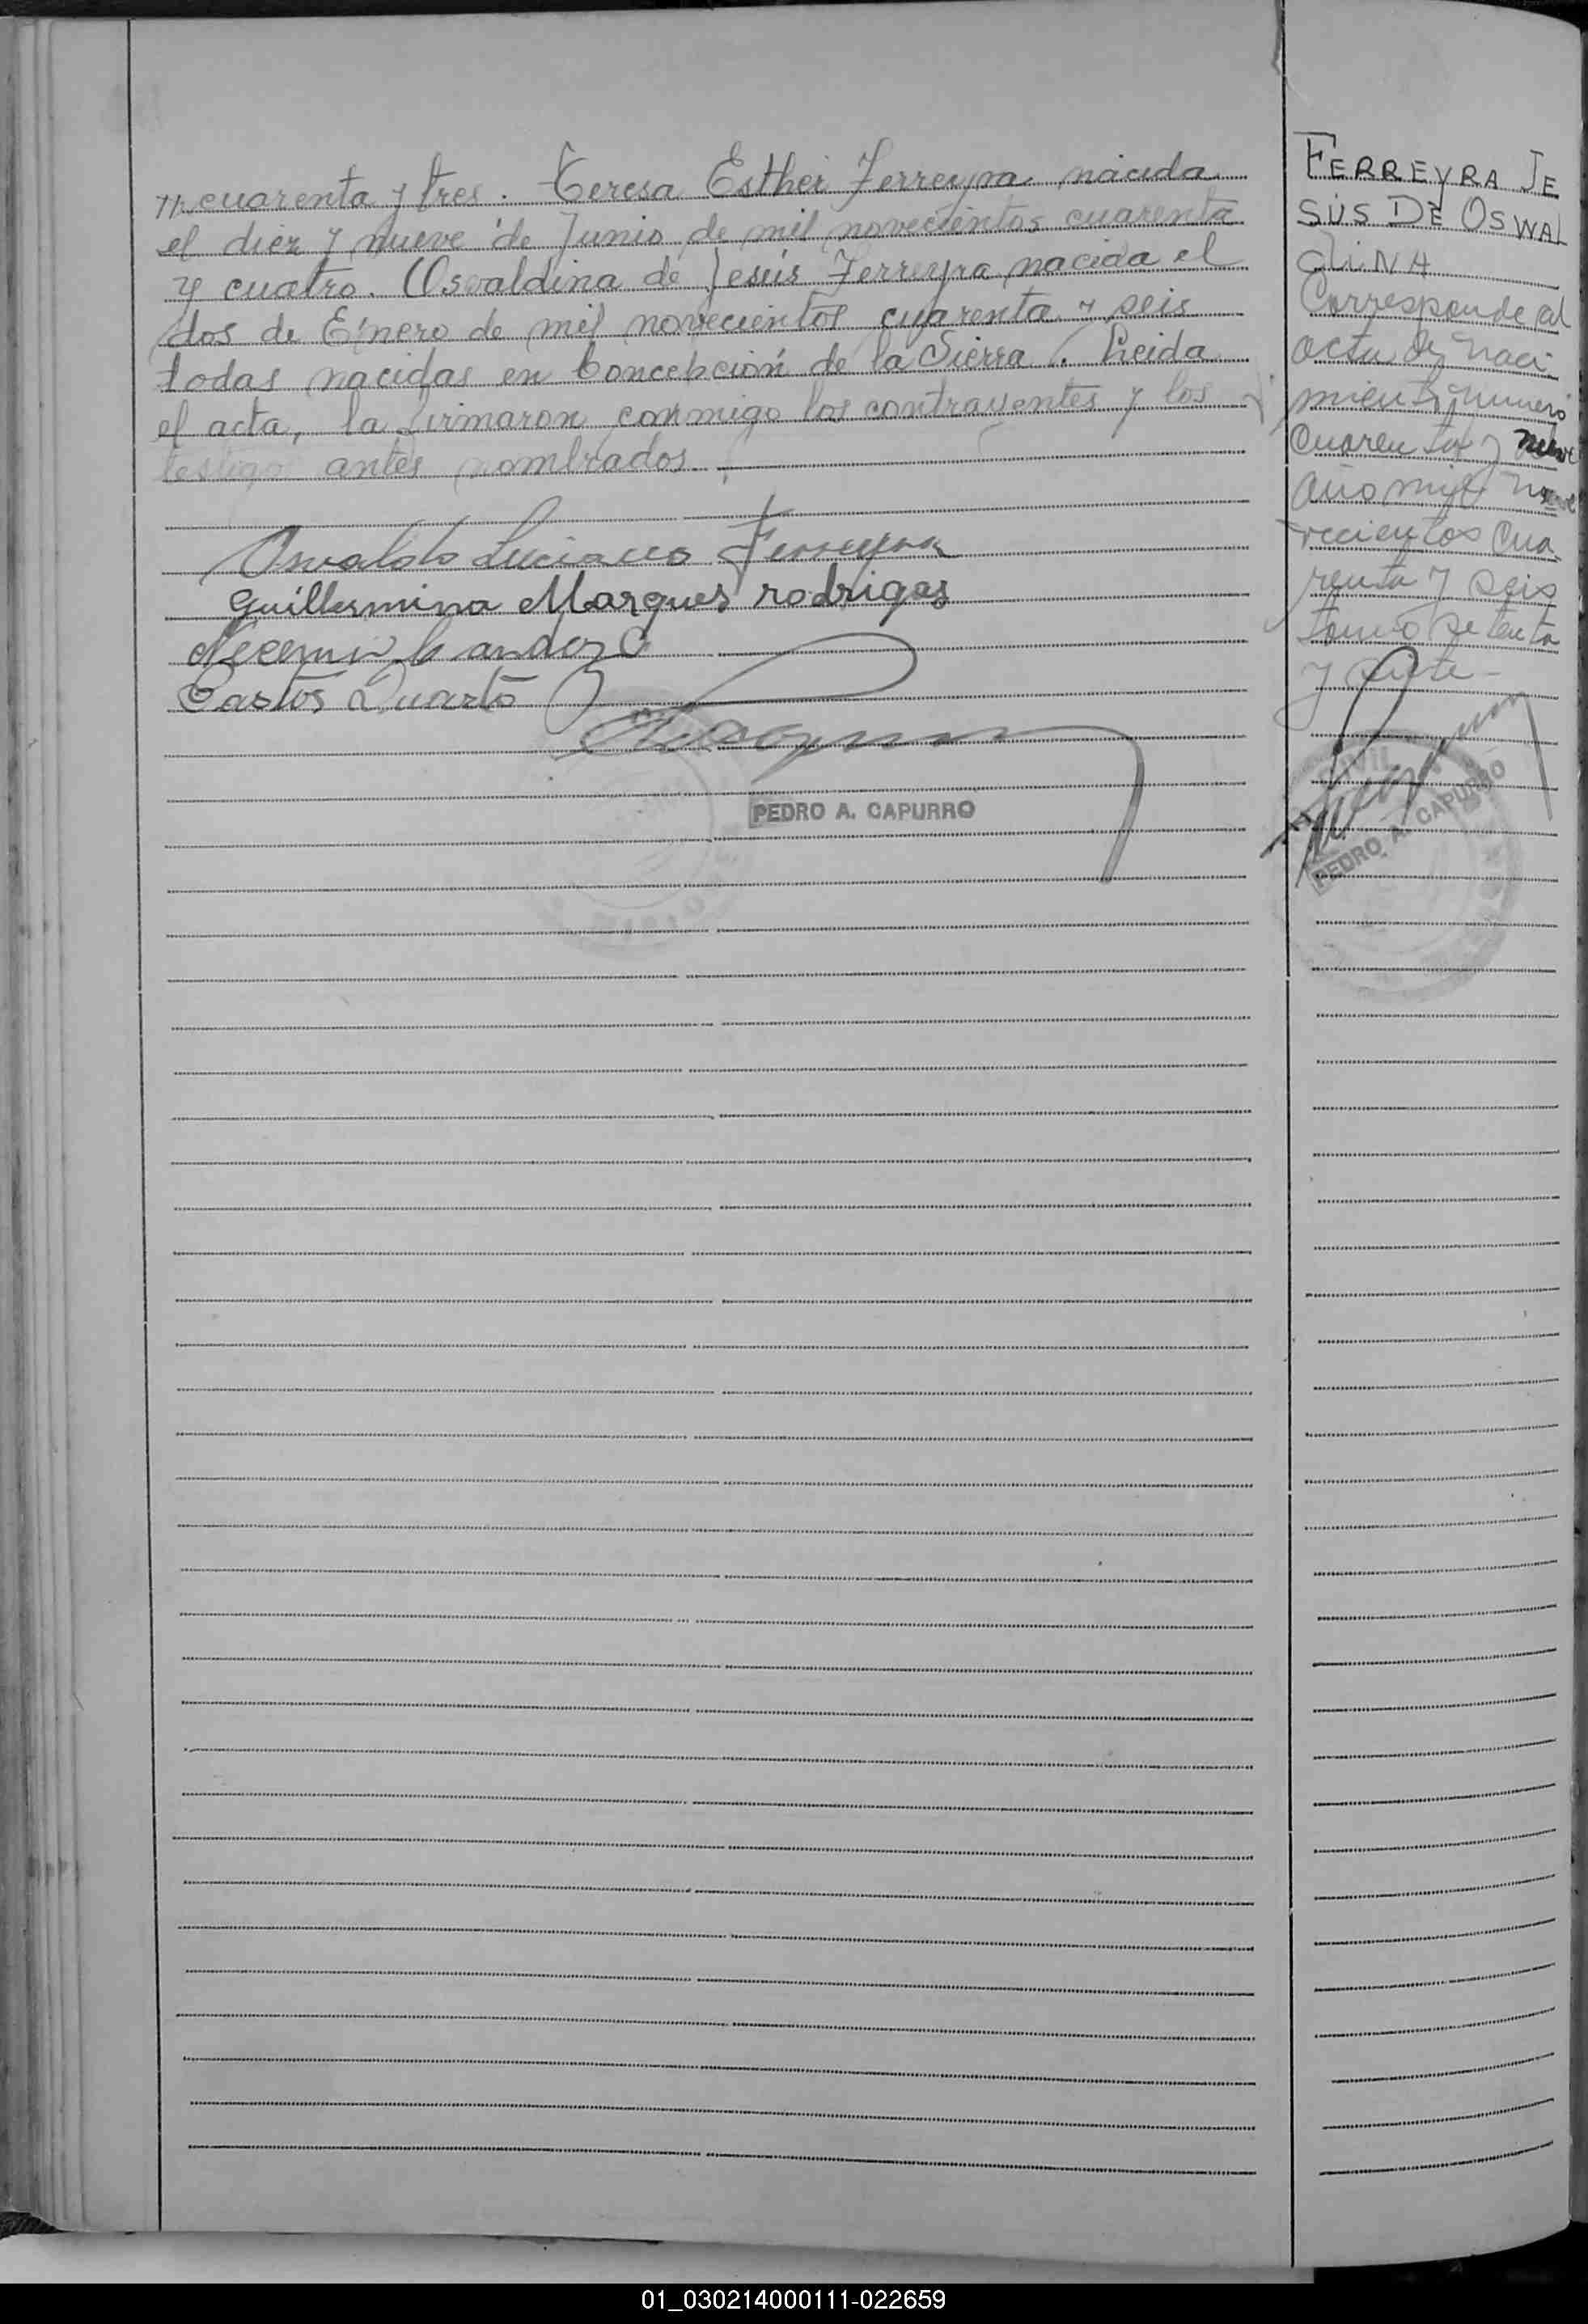 cuarenta y tres. Teresa Esther Ferreyra nacida
el diez y nueve de Junio de mil novecientos cuarenta
y cuatro. Osvaldina de Jesús Ferreyra nacida el
dos de Enero de mil novecientos cuarenta y seis
todas nacidas en Concepción de la Sierra. Leida
el acta, la firmaron conmigo los contrayentes y los
testigos antes nombrados.
Osvaldo Luciano Ferreyra
Guillermina Marques rodrigas
Castos Duarte
PEDRO A. CAPURRO
FERREYRA JE
SÚS DE OSWAL
diNA
Corresponde al
acta de naci
miento numero
cuarenta y nueve
año mil nove
cientos cua
renta y seis
tomo setenta
y siete
CIVIL
PEDRO A. CAPURRO
01_030214000111-022659